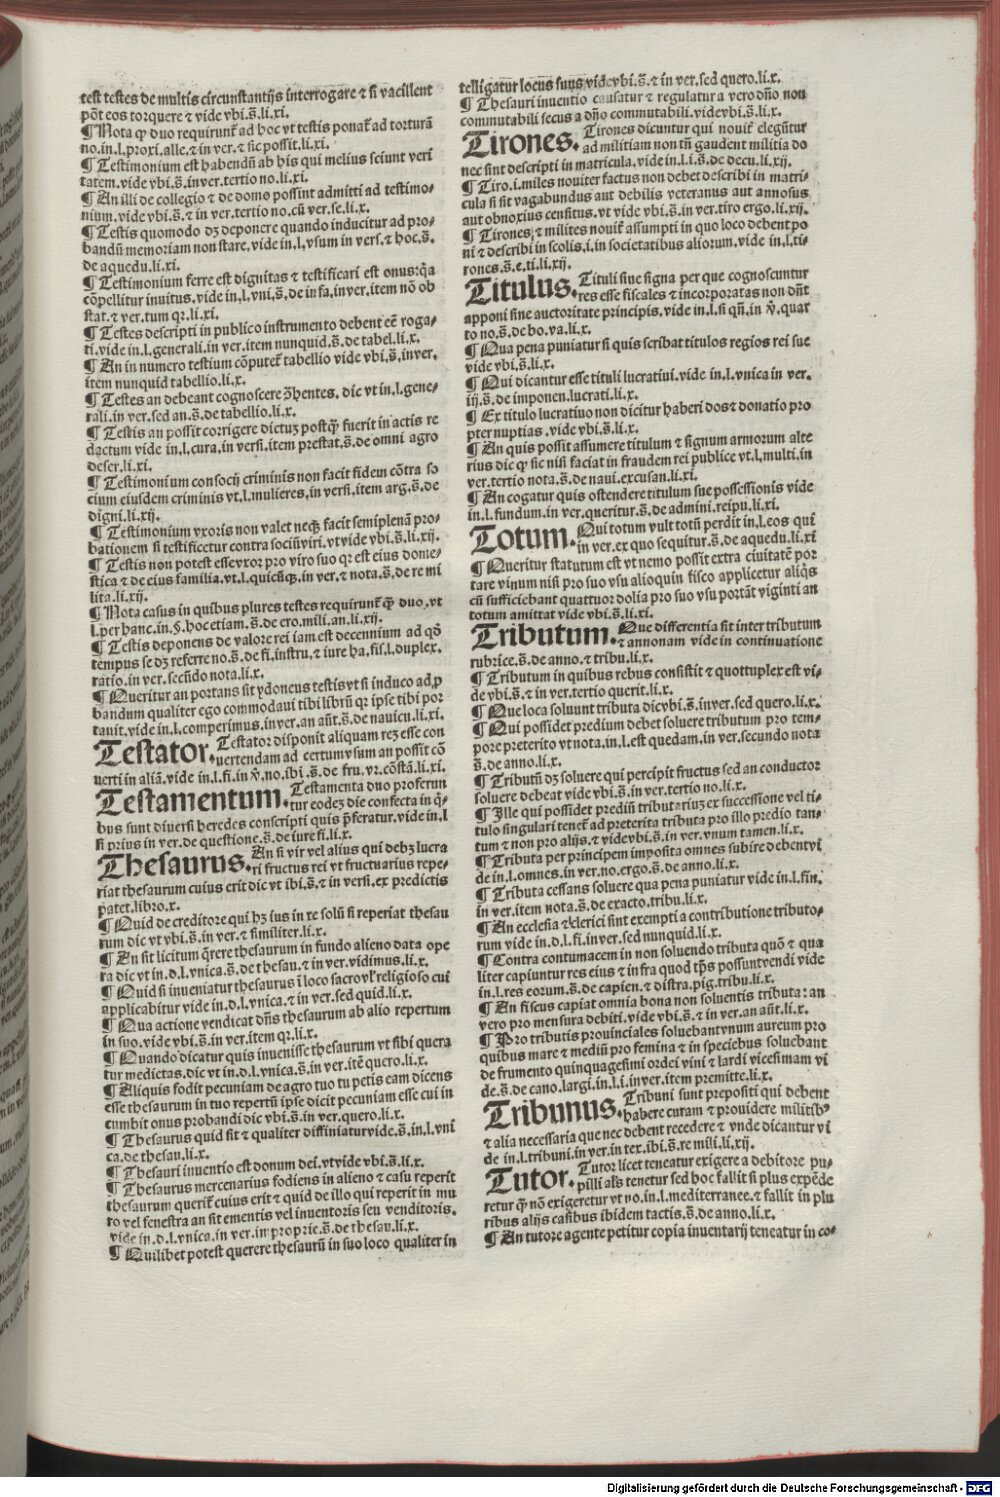 test testes de multis circunstantijs interrogare ⁊ si vacillent
põt eos torquere ⁊ vide vbi.s̃.li.xi.
¶ Nota ꝙ duo requirunt̃ ad hoc vt testis ponat̃ ad torturã
no.in.l.proxi.alle.⁊ in ver.⁊ sic possit.li.xi.
¶ Testimonium est habendũ ab his qui melius sciunt veri
tatem.vide vbi.s̃.in ver.tertio no.li.xi.
¶ An illi de collegio ⁊ de domo possint admitti ad testimo-
nium.vide vbi.s̃.⁊ in ver.tertio no.cũ ver.se.li.x.
¶ Testis quomodo dꝫ deponere quando inducitur ad pro-
bandũ memoriam non stare.vide in.l.vsum in vers.⁊ hoc.s̃.
de aquedu.li.xi.
¶ Testimonium ferre est dignitas ⁊ testificari est onus:q̃a
cõpellitur inuitus.vide in.l.vni.s̃.de infa.in ver.item nõ ob
stat.⁊ ver.tum qr.li.xi.
¶ Testes descripti in publico instrumento debent eẽ roga-
ti.vide in.l.generali.in ver.item nunquid.s̃.de tabel.li.x.
¶ An in numero testium cõputet̃ tabellio vide vbi.s̃.in ver.
item nunquid tabellio.li.x.
¶ Testes an debeant cognoscere ↄ̃hentes. dic vt in.l.gene-
rali.in ver.sed an.s̃.de tabellio.li.x.
¶ Testis an possit corrigere dictuꝫ postꝙ̃ fuerit in actis re
dactum vide in.l.cura.in versi.item prestat.s̃.de omni agro
deser.li.xi.
¶ Testimonium consocij criminis non facit fidem cõtra so
cium eiusdem criminis vt.l.mulieres.in versi.item arg.s̃.de
digni.li.xij.
¶ Testimonium vxoris non valet neqꝫ facit semiplenã pro-
bationem si testificetur contra sociũ viri.vt vide vbi.s̃.li.xij.
¶ Testis non potest esse vxor pro viro suo qr est eius dome-
stica ⁊ de eius familia.vt.l.quicũqꝫ.in ver.⁊ nota.s̃.de re mi
lita.li.xij.
¶ Nota casus in quibus plures testes requirunt̃ ꝙ̃ duo.vt
l.per hanc.in.§.hoc etiam.s̃.de ero.mili.an.li.xij.
¶ Testis deponens de valore rei iam est decennium ad qd̃
tempus se dꝫ referre no.s̃.de fi.instru.⁊ iure ha.fis.l.duplex.
ratio.in ver.secũdo nota.li.x.
¶ Queritur an portans sit ydoneus testis vt si induco ad ꝓ
bandum qualiter ego commodaui tibi librũ qr ipse tibi por
tauit.vide in.l.comperimus.in ver.an aũt.s̃.de nauicu.li.xi.
Testator. Testator disponit aliquam reꝫ esse con
uertendam ad certum vsum an possit cõ
uerti in aliã.vide in.l.fi.in v̄.no.ibi.s̃.de fru.vr.cõstã.li.xi.
Testamentum. Testamenta duo proferun
tur codeꝫ die confecta in q̃-
bus sunt diuersi heredes conscripti quis p̃feratur.vide in.l
si prius in ver.de questione.s̃.de iure fi.li.x.
Thesaurus. An si vir vel alius qui debꝫ lucra
ri fructus rei vt fructuarius repe-
riat thesaurum cuius erit dic vt ibi.s̃.⁊ in versi.ex predictis
patet.libro.x.
¶ Quid de creditore qui hꝫ ius in re solũ si reperiat thesau
rum dic vt vbi.s̃.in ver.⁊ similiter.li.x.
¶ An sit licitum q̃rere thesaurum in fundo alieno data ope
ra dic vt in.d.l.vnica.s̃.de thesau.⁊ in ver.vidimus.li.x.
¶ Quid si inueniatur thesaurus ĩ loco sacro vl̓ religioso cui
applicabitur vide in.d.l.vnica.⁊ in ver.sed quid.li.x.
¶ Qua actione vendicat dñs thesaurum ab alio repertum
in suo.vide vbi.s̃.in ver.item qr.li.x.
¶ Quando dicatur quis inuenisse thesaurum vt sibi quera
tur medietas.dic vt in.d.l.vnica.s̃.in ver.itẽ quero.li.x.
¶ Aliquis fodit pecuniam de agro tuo tu petis eam dicens
esse thesaurum in tuo repertũ ipse dicit pecuniam esse cui in
cumbit onus probandi dic vbi.s̃.in ver.quero.li.x.
¶ Thesaurus quid sit ⁊ qualiter diffiniatur vide.s̃.in.l.vni
ca.de thesau.li.x.
¶ Thesauri inuentio est donum dei.vt vide vbi.s̃.li.x.
¶ Thesaurus mercenarius fodiens in alieno ⁊ casu reperit
thesaurum querit̃ cuius erit ⁊ quid de illo qui reperit in mu
ro vel fenestra an sit ementis vel inuentoris seu venditoris.
vide in.d.l.vnica.in ver.in proprie.s̃.de thesau.li.x.
¶ Quilibet potest querere thesaurũ in suo loco qualiter in
telligatur locus suus vide vbi.s̃.⁊ in ver.sed quero.li.x.
¶ Thesauri inuentio causatur ⁊ regulatur a vero dño non
commutabili secus a dño commutabili.vide vbi.s̃.li.x.
Tirones. Tirones dicuntur qui nouit̃ elegũtur
ad militiam non tñ gaudent militia do
nec sint descripti in matricula.vide in.l.i.s̃.de decu.li.xij.
¶ Tiro.i.miles nouiter factus non debet describi in matri-
cula si sit vagabundus aut debilis veteranus aut annosus
aut obnoxius censitus.vt vide vbi.s̃.in ver.tiro ergo.li.xij.
¶ Tirones ⁊ milites nouit̃ assumpti in quo loco debent po
ni ⁊ describi in scolis.i.in societatibus aliorum.vide in.l.ti-
rones.s̃.e.ti.li.xij.
Titulus. Tituli siue signa per que cognoscuntur
res esse fiscales ⁊ incorporatas non dñt
apponi sine auctoritate principis.vide in.l.si qñ.in v̄.quar
to no.s̃.de bo.va.li.x.
¶ Qua pena puniatur si quis scribat titulos regios rei sue
vide vbi.s̃.li.x.
¶ Qui dicantur esse tituli lucratiui.vide in.l.vnica in ver.
iij.s̃.de imponen.lucrati.li.x.
¶ Ex titulo lucratiuo non dicitur haberi dos ⁊ donatio pro
pter nuptias.vide vbi.s̃.li.x.
¶ An quis possit assumere titulum ⁊ signum armorum alte
rius dic ꝙ sic nisi faciat in fraudem rei publice vt.l.multi.in
ver.tertio nota.s̃.de naui.excusan.li.xi.
¶ An cogatur quis ostendere titulum sue possessionis vide
in.l.fundum.in ver.queritur.s̃.de admini.reipu.li.xi.
Totum. Qui totum vult totũ perdit in.l.eos qui
in ver.ex quo sequitur.s̃.de aquedu.li.xi
¶ Queritur statutum est vt nemo possit extra ciuitatẽ por
tare vinum nisi pro suo vsu alioquin fisco applicetur aliq̃s
cũ sufficiebant quattuor dolia pro suo vsu portãt viginti an
totum amittat vide vbi.s̃.li.xi.
Tributum. Que differentia sit inter tributum
⁊ annonam vide in continuatione
rubrice.s̃.de anno.⁊ tribu.li.x.
¶ Tributum in quibus rebus consistit ⁊ quottuplex est vi-
de vbi.s̃.⁊ in ver.tertio querit.li.x.
¶ Que loca soluunt tributa dic vbi.s̃.in ver.sed quero.li.x.
¶ Qui possidet predium debet soluere tributum pro tem-
pore preterito vt nota.in.l.est quedam.in ver.secundo nota
s̃.de anno.li.x.
¶ Tributũ dꝫ soluere qui percipit fructus sed an conductor
soluere debeat vide vbi.s̃.in ver.tertio no.li.x.
¶ Ille qui possidet prediũ tributariuꝫ ex successione vel ti-
tulo singulari tenet̃ ad preterita tributa pro illo predio tan-
tum ⁊ non pro alijs.⁊ vide vbi.s̃.in ver.vnum tamen.li.x.
¶ Tributa per principem imposita omnes subire debent vi
de in.l.omnes.in ver.no.ergo.s̃.de anno.li.x.
¶ Tributa cessans soluere qua pena puniatur vide in.l.fin.
in ver.item nota.s̃.de exacto.tribu.li.x.
¶ An ecclesia ⁊ clerici sint exempti a contributione tributo-
rum vide in.d.l.fi.in ver.sed nunquid.li.x.
¶ Contra contumacem in non soluendo tributa quõ ⁊ qua
liter capiuntur res eius ⁊ infra quod tp̃s possunt vendi vide
in.l.res eorum.s̃.de capien.⁊ distra.pig.tribu.li.x.
¶ An fiscus capiat omnia bona non soluentis tributa: an
vero pro mensura debiti.vide vbi.s̃.⁊ in ver.an aũt.li.x.
¶ Pro tributis prouinciales soluebant vnum aureum pro
quibus mare ⁊ mediũ pro femina ⁊ in speciebus soluebant
de frumento quinquagesimi ordei vini ⁊ lardi vicesimam vi
de.s̃.de cano.largi.in.l.i.in ver.item premitte.li.x.
Tribunus. Tribuni sunt prepositi qui debent
habere curam ⁊ prouidere militibꝰ
⁊ alia necessaria que nec debent recedere ⁊ vnde dicantur vi
de in.l.tribuni.in ver.in tex.ibi.s̃.re mili.li.xij.
Tutor. Tutor licet teneatur exigere a debitore pu-
pilli als̃ tenetur sed hoc fallit si plus expẽde
retur ꝙ̃ nõ exigeretur vt no.in.l.mediterranee.⁊ fallit in plu
ribus alijs casibus ibidem tactis.s̃.de anno.li.x.
¶ An tutore agente petitur copia inuentarij teneatur in co-
Digitalisierung gefördert durch die Deutsche Forschungsgemeinschaft - DFG